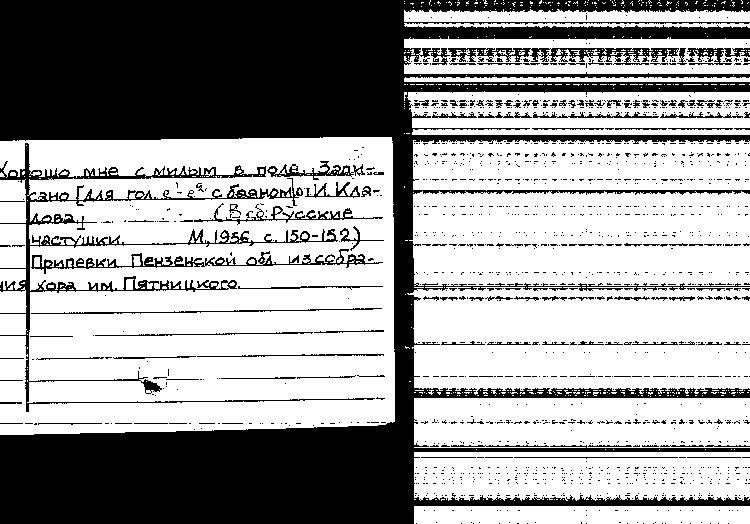 Хорошо мне с милым в поле. Запи-
сано [для гол. e¹-e² с баяном] от И. Кла-
дова.
(В сб: Русские
частушки. М, 1956, с. 150-152)
Припевки Пензенской обл. из собра-
ния хора им. Пятницкого.